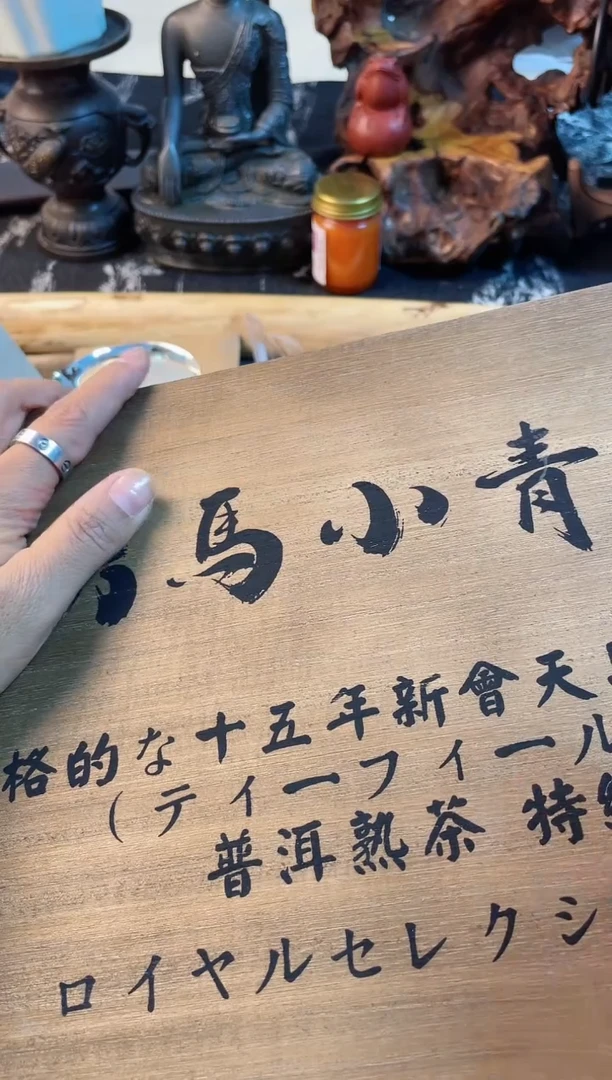 馬小青
格的な十五年新會天
(ティーフィール
普洱熟茶 特
ロイヤルセレクシ